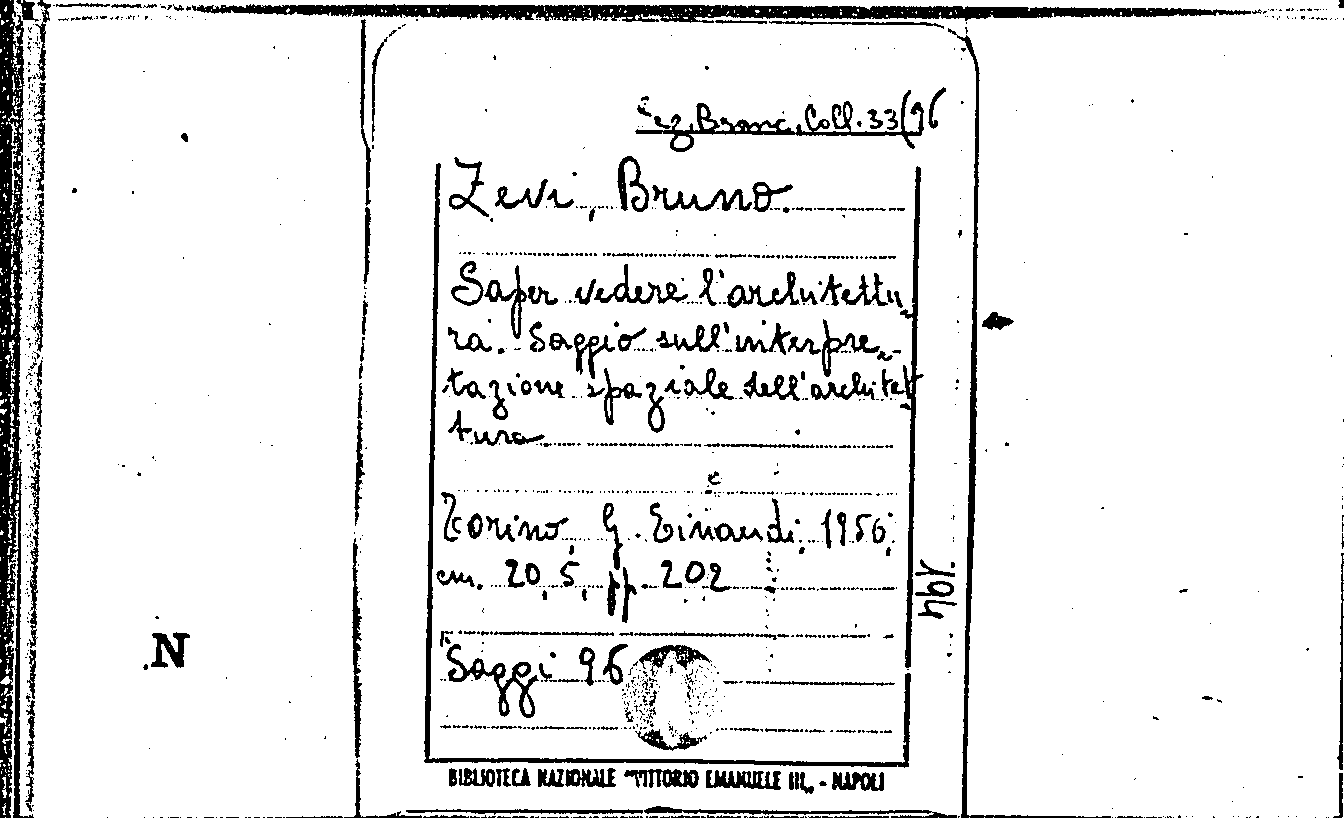 Sez. Branc. Coll. 33(96
Zevi, Bruno.
Saper vedere l'architettu
ra. Saggio sull'interpre-
tazione spaziale dell'architet
tura
Torino, G. Einaudi, 1956,
cm. 20,5, pp. 202
Saggi 96
N
BIBLIOTECA NAZIONALE "VITTORIO EMANUELE III„ - NAPOLI